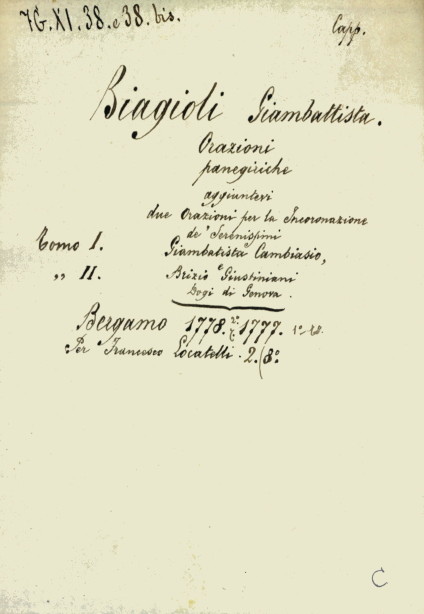 7G.XI.38.e 38.bis.
Capp.
Biagioli Giambattista.
Orazioni
panegiriche
aggiuntevi
due Orazioni per la Incoronazione
de' Serenissimi
Tomo I. Giambatista Cambiasio,
e
„ II. Brizio Giustiniani
Dogi di Genova.
Bergamo 1778. 1777.
Per Francesco Locatelli. 2. (8°
C